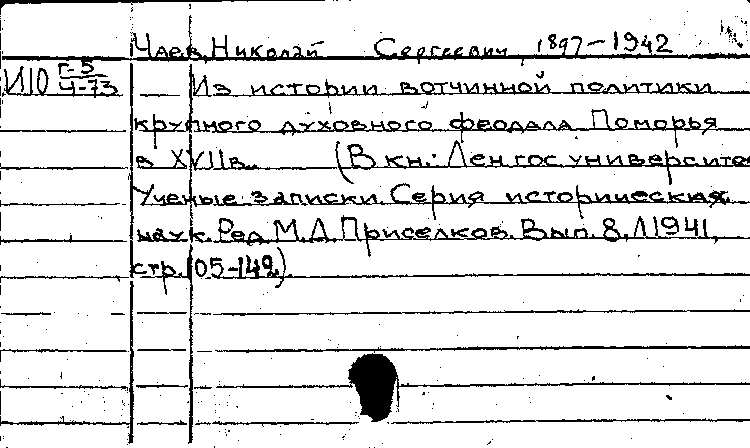 Чаев, Николай Сергеевич, 1897-1942
И10 Г-5
Ч-73
— Из истории вотчинной политики
крупного духовного феодала Поморья
в XVII в. (В кн.: Лен.гос.университе
Ученые записки. Серия исторических
наук. Ред. М.Д. Приселков. Вып. 8, Л 1941,
стр. 105-142).